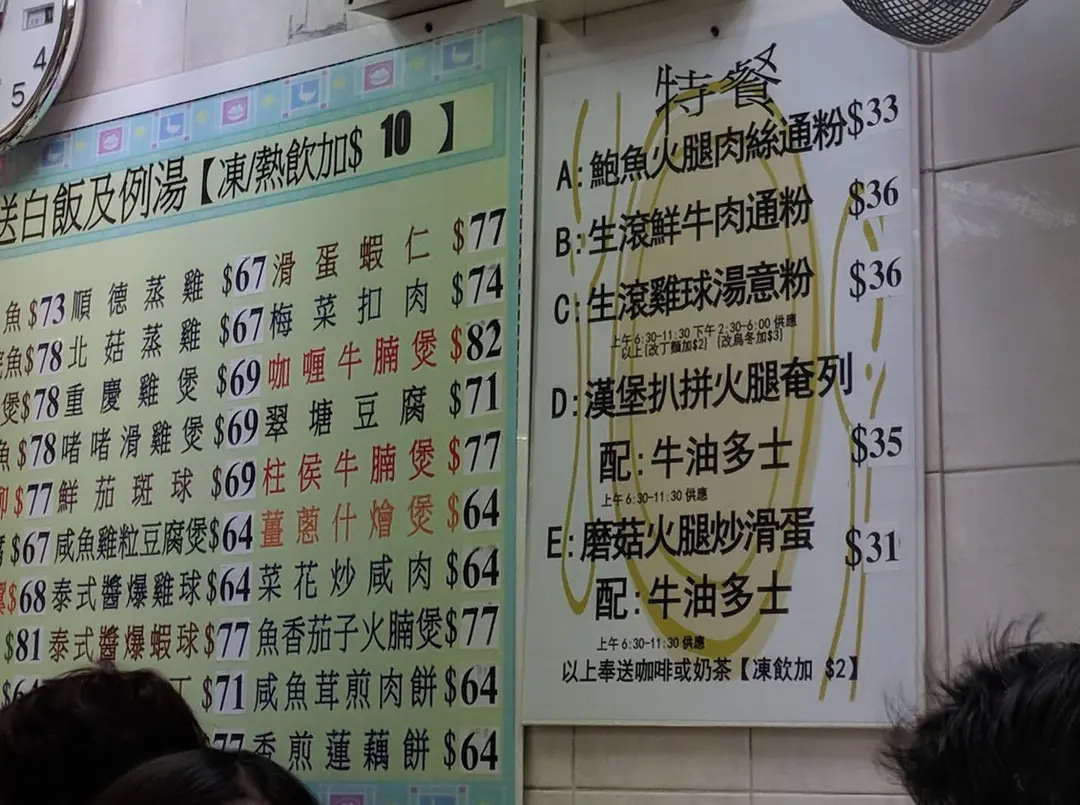 4
5
送白飯及例湯【凍/熱飲加$ 10 】
魚 $73 順德蒸雞 $67 滑蛋蝦仁 $77
魚 $78 北菇蒸雞 $67 梅菜扣肉 $74
煲 $78 重慶雞煲 $69 咖喱牛腩煲 $82
魚 $78 啫啫滑雞煲 $69 翠塘豆腐 $71
$77 鮮茄斑球 $69 柱侯牛腩煲 $77
$67 咸魚雞粒豆腐煲 $64 薑蔥什燴煲 $64
$68 泰式醬爆雞球 $64 菜花炒咸肉 $64
$81 泰式醬爆蝦球 $77 魚香茄子火腩煲 $77
丁 $71 咸魚茸煎肉餅 $64
77 香煎蓮藕餅 $64
特餐
A:鮑魚火腿肉絲通粉 $33
B:生滾鮮牛肉通粉 $36
C:生滾雞球湯意粉 $36
上午 6:30-11:30 下午 2:30-6:00 供應
以上[改丁麵加$2] [改烏冬加$3]
D:漢堡扒拼火腿奄列
配:牛油多士 $35
上午 6:30-11:30 供應
E:磨菇火腿炒滑蛋 $31
配:牛油多士
上午 6:30-11:30 供應
以上奉送咖啡或奶茶【凍飲加 $2】